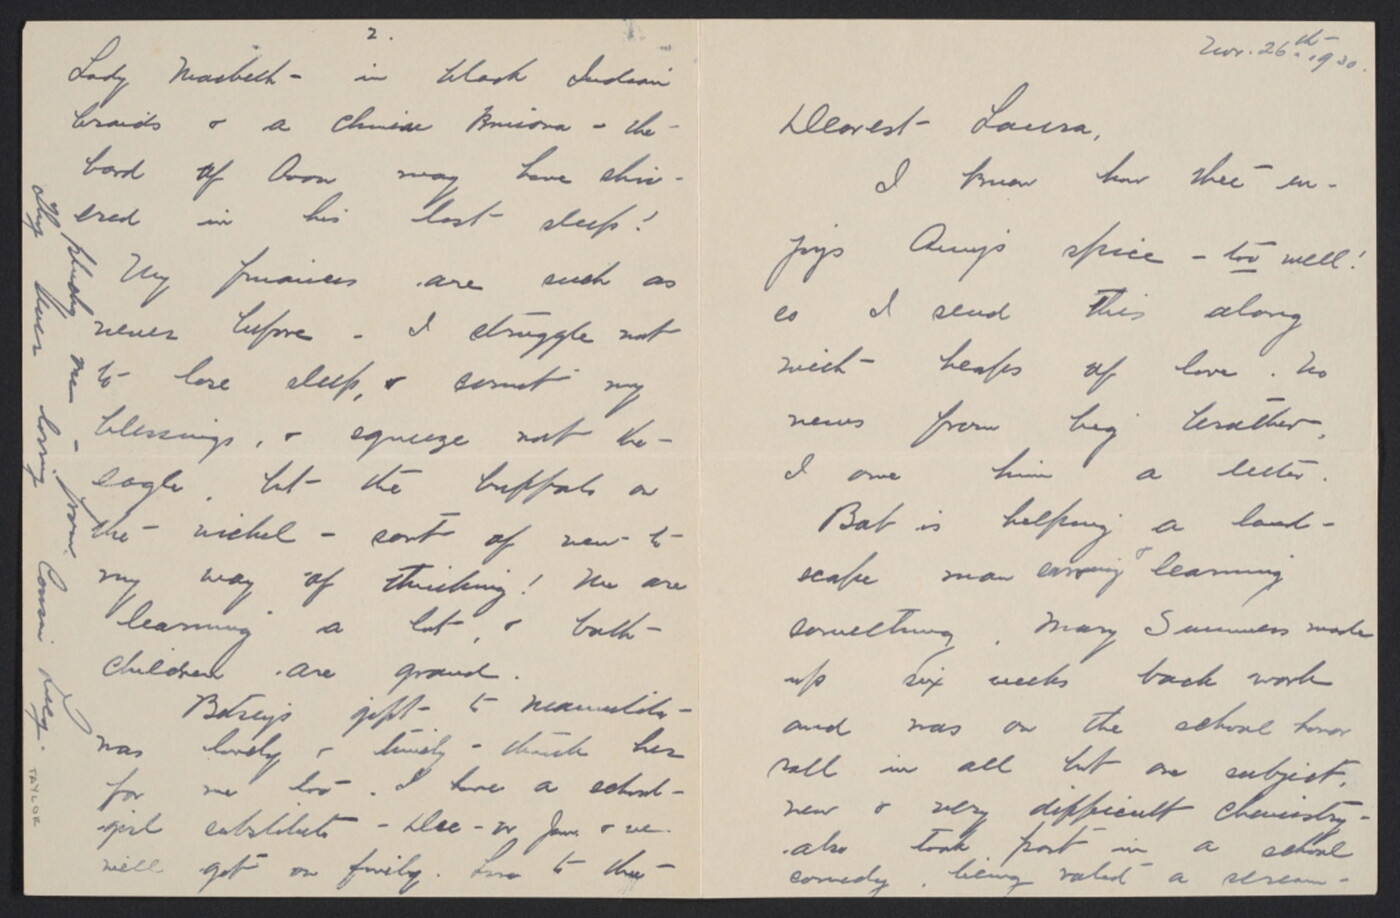 Nov. 26th 1930.
Dearest Laura,
I know how thee en-
joys Amy's spice - too well!
so I send this along
with heaps of love. No
news from big brother,
I owe him a letter.
Bab is helping a land-
scape man earning & learning
something. Mary Summers made
up six weeks back work
and was on the school honor
roll in all but one subject,
new & very difficult chemistry -
also took part in a school
comedy, being voted a scream -
2.
Lady Macbeth - in black Indian
braids & a Chinese Kimona - the
bard of Avon may have shiv-
ered in his last sleep!
My finances are such as
never before - I struggle not
to lose sleep, & count my
blessings, & squeeze not the
eagle, but the buffalo on
the nickel - sort of new to
my way of thinking! We are
learning a lot, & both
children are grand.
Betsey's gift to
was lovely & timely - thank her
for me too. I have a school-
girl substitute - Dec - or Jan. & we
will get on finely. Love to thee
thy ever loving Cousin Lucy.
TAYLOR